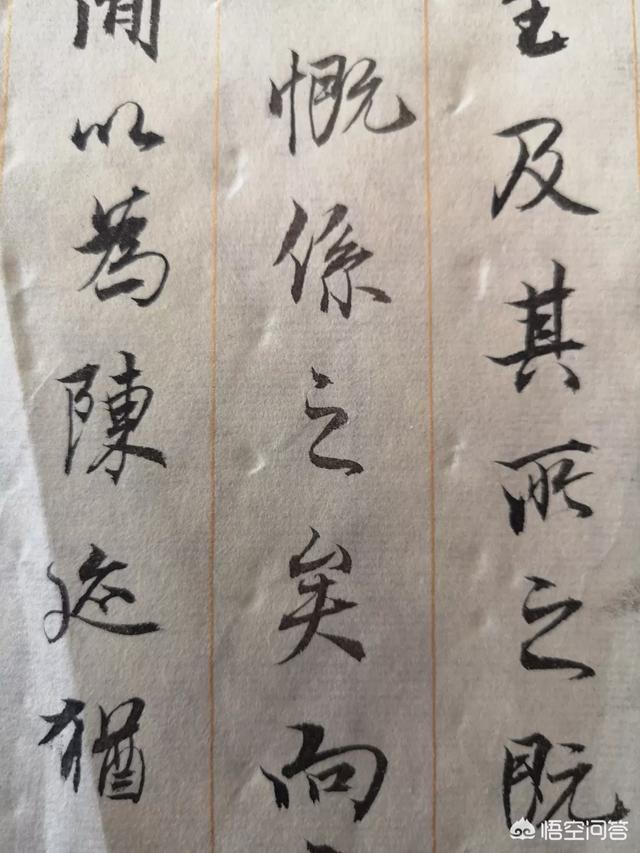 至及其所之既
慨係之矣向
閒以為陳迹猶
悟空问答